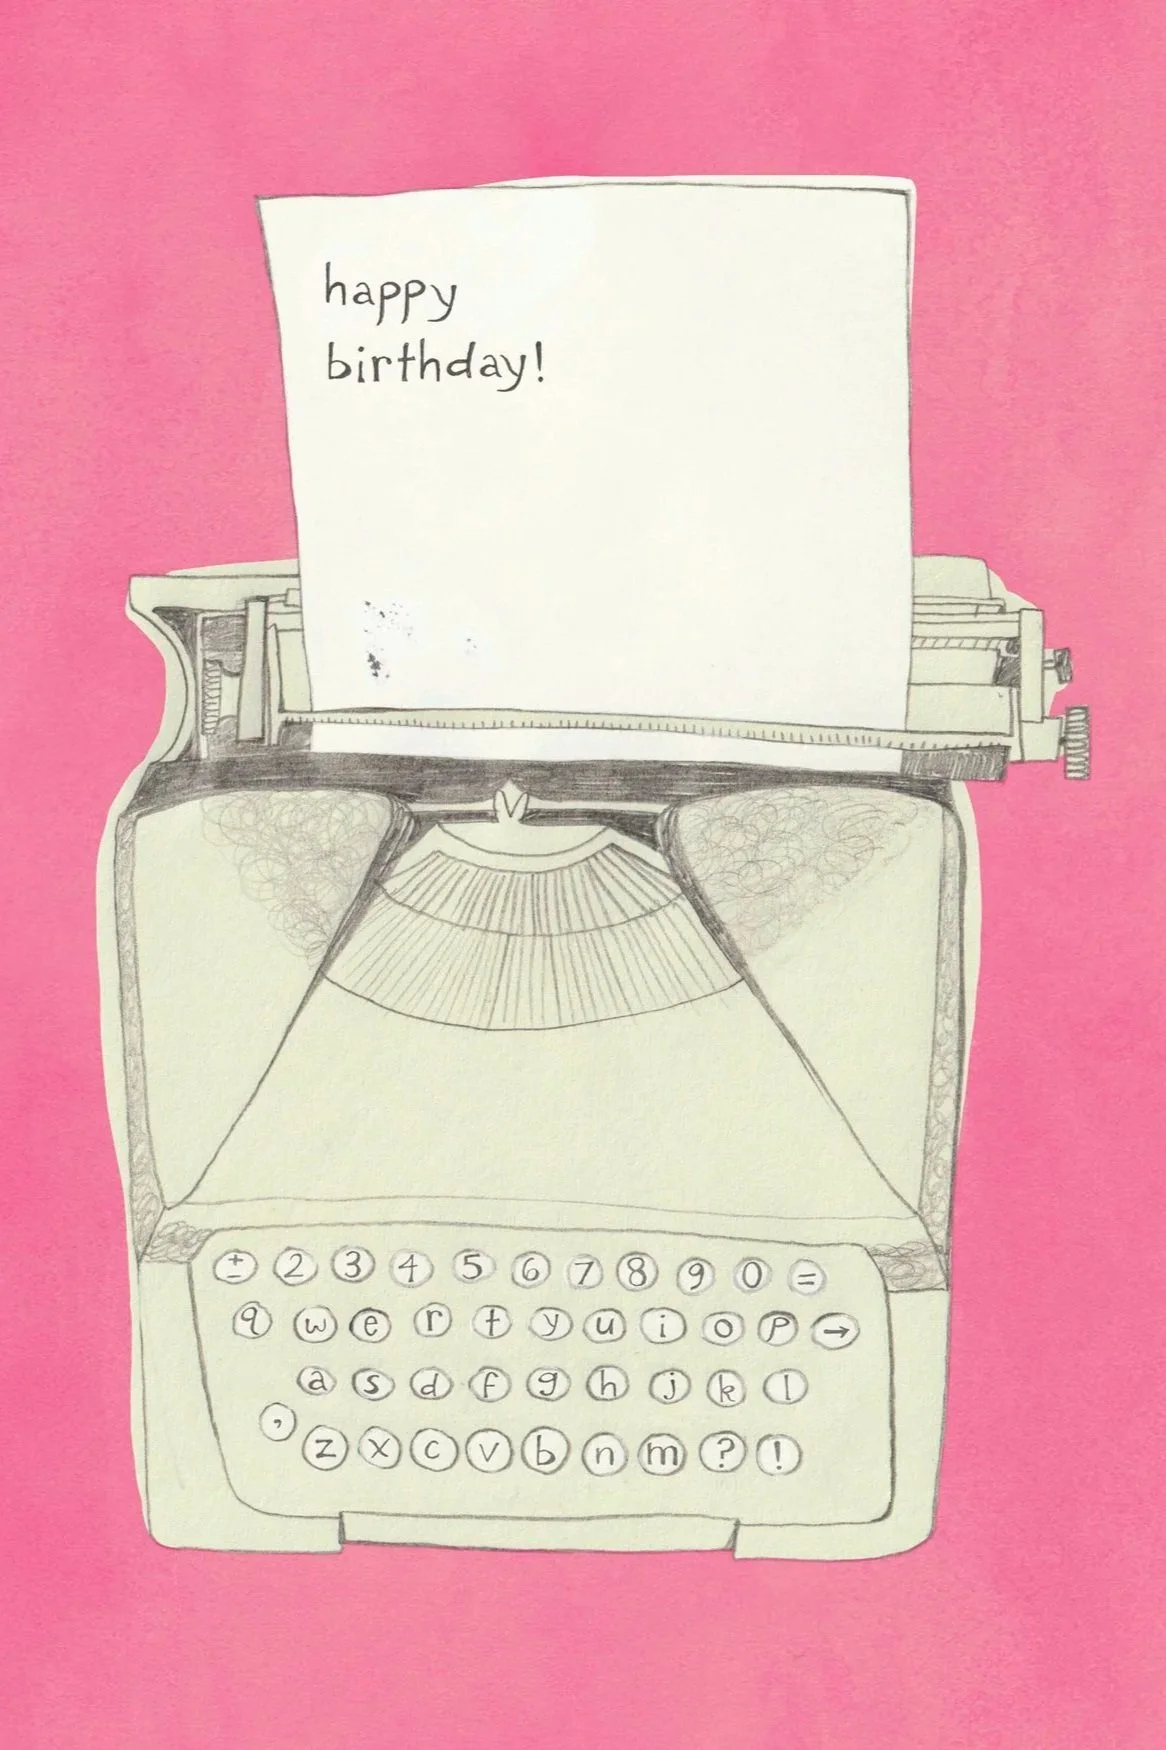 happy
birthday!
± 2 3 4 5 6 7 8 9 0 =
q w e r t y u i o p →
a s d f g h j k l
, z x c v b n m ? !